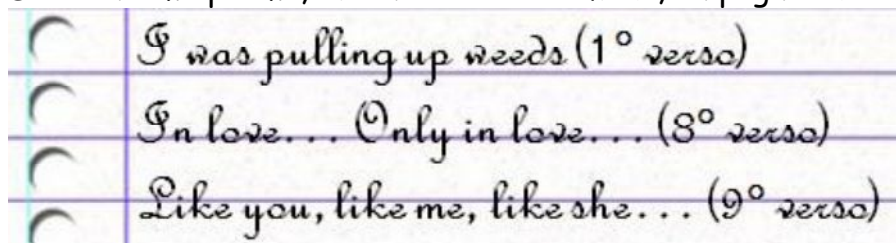 I was pulling up weeds (1° verso)
In love... Only in love... (8° verso)
Like you, like me, like she... (9° verso)